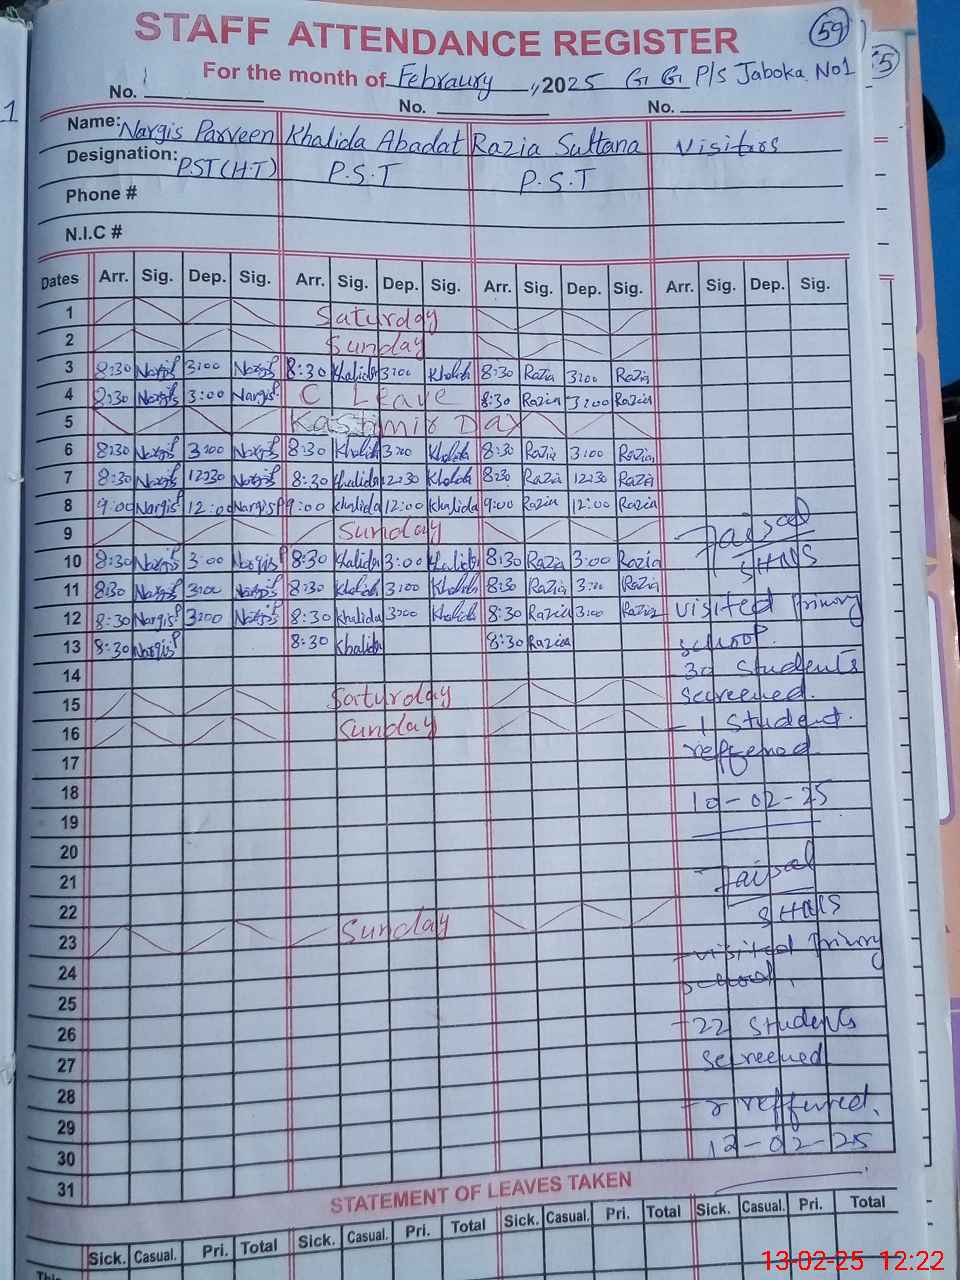 STAFF ATTENDANCE REGISTER 59
For the month of Febraury, 2025 G G P/S Jaboka No1
No. No. No.
Name: Nargis Parveen Khalida Abadat Razia Sultana Visitors
Designation: PST(H.T) P.S.T P.S.T
Phone #
N.I.C #
Dates Arr. Sig. Dep. Sig. Arr. Sig. Dep. Sig. Arr. Sig. Dep. Sig. Arr. Sig. Dep. Sig.
1 Saturday
2 Sunday
3 8:30 Nargis 3:00 Nargis 8:30 Khalida 3:00 Khalida 8:30 Razia 3:00 Razia
4 8:30 Nargis 3:00 Nargis C Leave 8:30 Razia 3:00 Razia
5 Kashmir Day
6 8:30 Nargis 3:00 Nargis 8:30 Khalida 3:00 Khalida 8:30 Razia 3:00 Razia
7 8:30 Nargis 12:30 Nargis 8:30 Khalida 12:30 Khalida 8:30 Razia 12:30 Razia
8 9:00 Nargis 12:00 Nargis P 9:00 Khalida 12:00 Khalida 9:00 Razia 12:00 Razia
9 Sunday
10 8:30 Nargis 3:00 Nargis P 8:30 Khalida 3:00 Khalida 8:30 Razia 3:00 Razia
11 8:30 Nargis 3:00 Nargis 8:30 Khalida 3:00 Khalida 8:30 Razia 3:00 Razia
12 8:30 Nargis P 3:00 Nargis 8:30 Khalida 3:00 Khalida 8:30 Razia 3:00 Razia
13 8:30 Nargis P 8:30 Khalida 8:30 Razia
14
15 Saturday
16 Sunday
17
18
19
20
21
22
23 Sunday
24
25
26
27
28
29
30
31
Faisal
SHNS
visited Primary
school.
30 Students
Screened.
- 1 Student.
reffered
10-02-25
Faisal
SHNS
visited Primry
school.
- 22 Students
Screened
- 2 reffered.
12-02-25
STATEMENT OF LEAVES TAKEN
Sick. Casual. Pri. Total Sick. Casual. Pri. Total Sick. Casual. Pri. Total Sick. Casual. Pri. Total
13-02-25 12:22